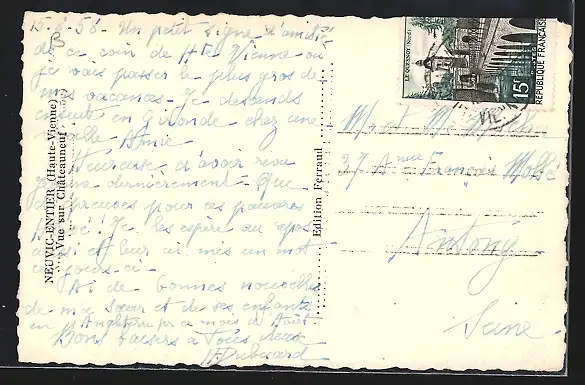 15.8.58. Un petit signe d'amitié
de ce coin de Hte Vienne où
je vais passer le plus gros de
mes vacances. Je descends
ensuite en Gironde chez une
Amie
Heureuse d'avoir revu
dernièrement. Que
pour ces pauvres
Je les espère au repos
et leur ai mis un mot
ces jours-ci.
Ai de bonnes nouvelles
de ma sœur et de ses enfants
en Angleterre pr ce mois d'Août.
Bons baisers à Tous deux
NEUVIC-ENTIER (Haute-Vienne)
Vue sur Châteauneuf
Edition Ferraud
LE QUESNOY (Nord)
15F
RÉPUBLIQUE FRANÇAISE
VIENNE
Mr et Me
37 Anue François Molé
Antony
Seine